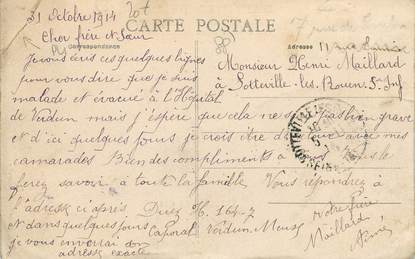 31 Octobre 1914
CARTE POSTALE
Cher frère et Sœur
Correspondance
Adresse 11 rue
Je vous écris ces quelques lignes
Monsieur Henri Maillard
pour vous dire que je suis
à Sotteville-les-Rouen S. Inf
malade et évacué à l'Hôpital
de Verdun mais j'espère que cela ne sera pas bien grave
et d'ici quelques jours je crois être de retour avec mes
camarades Bien des compliments à
ferez savoir à toute la famille Vous répondrez à
l'adresse ci après
et dans quelques jours Caporal Verdun Meuse
je vous enverrai mon
adresse exacte
votre frère
Maillard